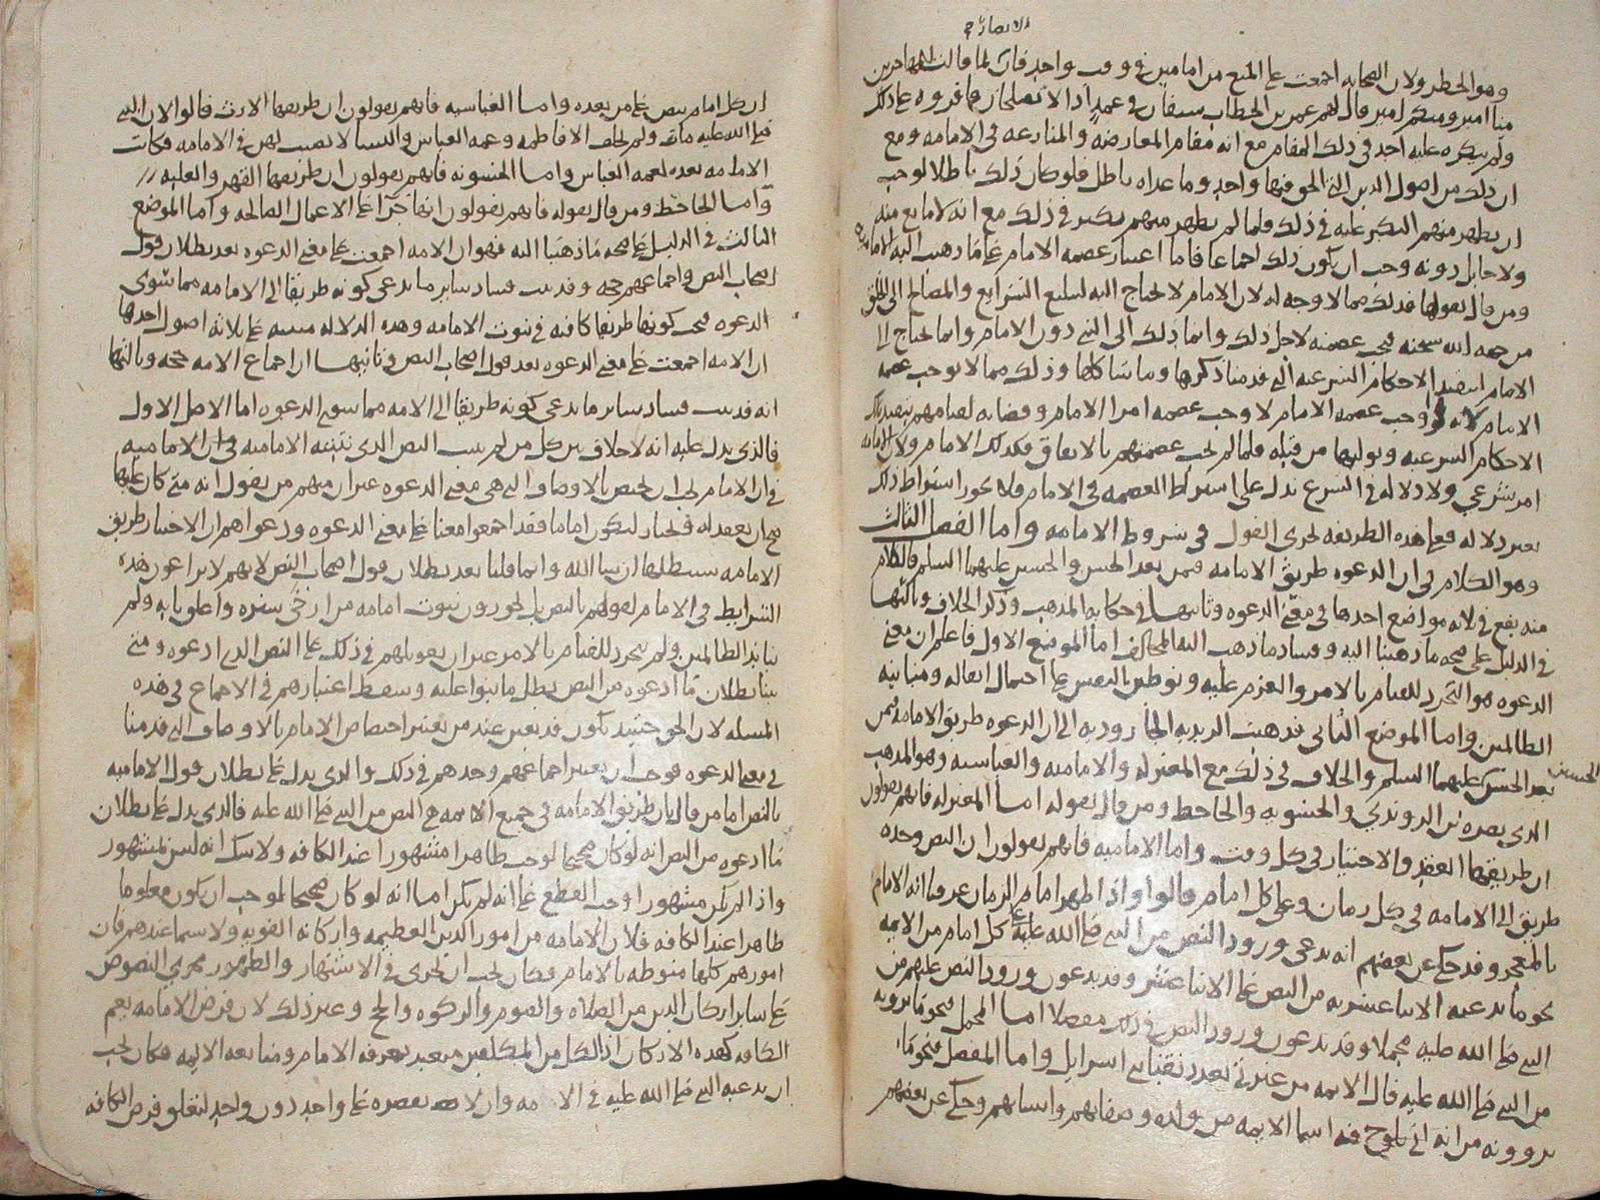 وهو الحظر ولان الصحابه اجمعت على المنع من امامين في وقت واحد فان لما قالت
منا امير ومنكم امير قال لهم عمر بن الخطاب سيفان في غمد اذا لا يصلحان فاقروه على ذلك
ولم ينكره عليه احد في ذلك المقام مع انه مقام المعارضه والمنازعه في الامامه ومع
ان ذلك من اصول الدين التي الحق فيها واحد وما عداه باطل فلو كان ذلك باطلا لوجب
ان يظهر منهم النكير عليه في ذلك فلما لم يظهر منهم نكير في ذلك مع انه لا مانع منه
ولا حايل دونه وجب ان يكون ذلك اجماعا فاما اعتبار عصمه الامام على ما ذهبت اليه الاماميه
ومن قال بقولها فذلك مما لا وجه له لان الامام لا يحتاج اليه لتبليغ الشرايع والمصالح الى الخلق
من جهه الله سبحنه فتجب عصمته لاجل ذلك وانما ذلك الى النبي دون الامام وانما يحتاج الى
الامام لتنفيذ الاحكام الشرعيه التي قدمنا ذكرها وما شاكلها وذلك مما لا يوجب عصمه
الامام لانه لو وجب عصمه الامام لاوجب عصمه امرا الامام وقضاته لقيامهم بتنفيذ تلك
الاحكام الشرعيه وتوليها من قبله فلما لم تجب عصمتهم بالاتفاق فكذلك الامام ولان الامامه
امر شرعي ولا دلاله في الشرع تدل على اشتراط العصمه في الامام فلا يجوز اشتراط ذلك
بغير دلاله فعلى هذه الطريقه يجرى القول في شروط الامامه واما الفصل الثالث
وهو الكلام في ان الدعوه طريق الامامه فمن بعد الحسن والحسين عليهما السلم فالكلام
منه يقع في ثلاثه مواضع احدها في معنى الدعوه وثانيها في حكايه المذهب وذكر الخلاف وثالثها
في الدليل على صحه ما ذهبنا اليه وفساد ما ذهب اليه المخالف اما الموضع الاول فاعلم ان معنى
الدعوه هو التجرد للقيام بالامر والعزم عليه وتوطين النفس على احتمال اثقاله ومباينه
الظالمين واما الموضع الثاني فذهبت الزيديه الجاروديه الى ان الدعوه طريق الامامه فيمن
بعد الحسن والحسين عليهما السلم والخلاف في ذلك مع المعتزله والاماميه والعباسيه وهو المذهب
الذي نصره بن الروندي والحشويه والجاحظ ومن قال بقوله اما المعتزله فانهم يقولون
ان طريقها العقد والاختيار في كل وقت واما الاماميه فانهم يقولون ان النص وحده
طريق الى الامامه في كل زمان وعلى كل امام قالوا واذا ظهر امام الزمان عرفنا انه الامام
بالمعجز وقد حكي عن بعضهم انه يدعي ورود النص من النبي صلى الله عليه على كل امام من الايمه
نحو ما يدعيه الاثنا عشريه من النص على الاثنا عشر وقد يدعون ورود النص عليهم من
النبي صلى الله عليه مجملا وقد يدعون ورود النص في ذلك مفصلا اما المجمل فنحو ما يروونه
من النبي صلى الله عليه قال الايمه من عترتي بعدد نقبا بني اسرايل واما المفصل فنحو ما
يروونه من انه اتي بلوح فيه اسما الايمه من ولده وصفاتهم وانسابهم وحكي عن بعضهم
ان كل امام ينص على من بعده واما العباسيه فانهم يقولون ان طريقها الارث قالوا لان النبي
صلى الله عليه مات ولم يخلف الا فاطمه وعمه العباس والنسا لا نصيب لهن في الامامه فكانت
الامامه بعده لعمه العباس واما الحشويه فانهم يقولون ان طريقها القهر والغلبه
واما الجاحظ ومن قال بقوله فانهم يقولون انها جزآ على الاعمال الصالحه واما الموضع
الثالث في الدليل على صحه ما ذهبنا اليه فهو ان الامه اجمعت على معنى الدعوه بعد بطلان قول
اصحاب النص واجماعهم حجه وقد ثبت فساد ساير ما يدعى كونه طريقا الى الامامه مما سوى
الدعوه فيجب كونها طريقا كافيه في ثبوت الامامه وهذه الدلاله مبنيه على ثلاثه اصول احدها
ان الامه اجمعت على معنى الدعوه بعد قول اصحاب النص وثانيها ان اجماع الامه حجه وثالثها
انه قد ثبت فساد ساير ما يدعى كونه طريقا الى الامه مما سوى الدعوه اما الاصل الاول
فالذي يدل عليه انه لا خلاف بين كل من لم يثبت النص الذي تثبته الاماميه
في ان الامام يجب ان يختص بالاوصاف التي هي معنى الدعوه غير ان منهم من يقول انه متى كان عليها
صح ان يعقد له فيختار ليكون اماما فقد اجمعوا معنا على معنى الدعوه ودعواهم ان الاختيار طريق
الامامه سنبطلها ان شا الله وانما قلنا بعد بطلان قول اصحاب النص لانهم لا يراعون هذه
الشرايط في الامام لقولهم بالنص بل يجوزون ثبوت امامه من ارخى ستره واغلق بابه ولم
يباين الظالمين ولم يتجرد للقيام بالامر غير ان تعويلهم في ذلك على النص الذي ادعوه ومتى
بينا بطلان ما ادعوه من النص بطل ما بنوا عليه وسقط اعتبارهم في الاجماع في هذه
المسله لان الحق حينيذ يكون قد تعين عند من يعتبر اختصاص الامام بالاوصاف التي قدمنا
في معنى الدعوه فوجب ان يعتبر اجماعهم وحدهم في ذلك والذي يدل على بطلان قول الاماميه
بالنص اما من قال بان طريق الامامه في جميع الايمه هي النص من النبي صلى الله عليه فالذي يدل على بطلان
ما ادعوه من النص انه لو كان صحيحا لوجب ظاهرا مشهورا عند الكافه ولا شك انه ليس بمشهور
واذا لم يكن مشهورا وجب القطع على انه لم يكن اما انه لو كان صحيحا لوجب ان يكون معلوما
ظاهرا عند الكافه فلان الامامه من امور الدين العظيمه واركانه القويه ولا سيما عندهم فان
امورهم كلها منوطه بالامام فكان يجب ان يجرى في الاشتهار والظهور مجرى النصوص
على ساير اركان الدين من الصلاه والصوم والزكوه والحج وغير ذلك لان فرض الامامه يعم
الكافه كهذه الاركان اذ الكل من المكلفين متعبد بمعرفه الامام ومتابعه الايمه فكان يجب
ان يدعيه النبي صلى الله عليه في الامه وان لا يقصره على واحد دون واحد لتعلق فرض الكافه